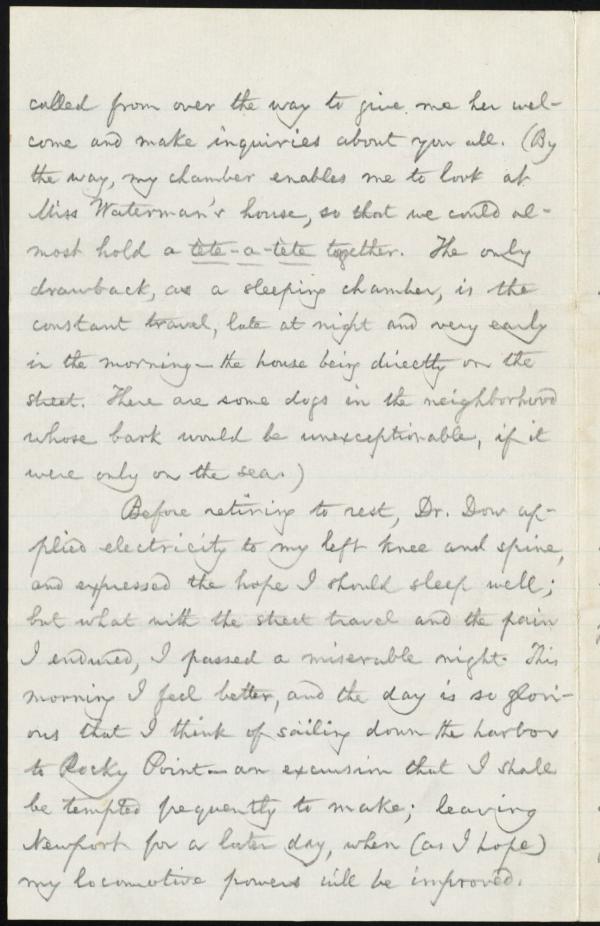 called from over the way to give me her wel-
come and make inquiries about you all. (By
the way, my chamber enables me to look at
Miss Waterman's house, so that we could al-
most hold a tête-a-tête together. The only
drawback, as a sleeping chamber, is the
constant travel, late at night and very early
in the morning—the house being directly on the
street. There are some dogs in the neighborhood
whose bark would be unexceptionable, if it
were only on the sea.)
Before retiring to rest, Dr. Dow ap-
plied electricity to my left knee and spine,
and expressed the hope I should sleep well;
but what with the street travel and the pain
I endured, I passed a miserable night. This
morning I feel better, and the day is so glori-
ous that I think of sailing down the harbor
to Rocky Point—an excursion that I shall
be tempted frequently to make; leaving
Newport for a later day, when (as I hope)
my locomotive powers will be improved.